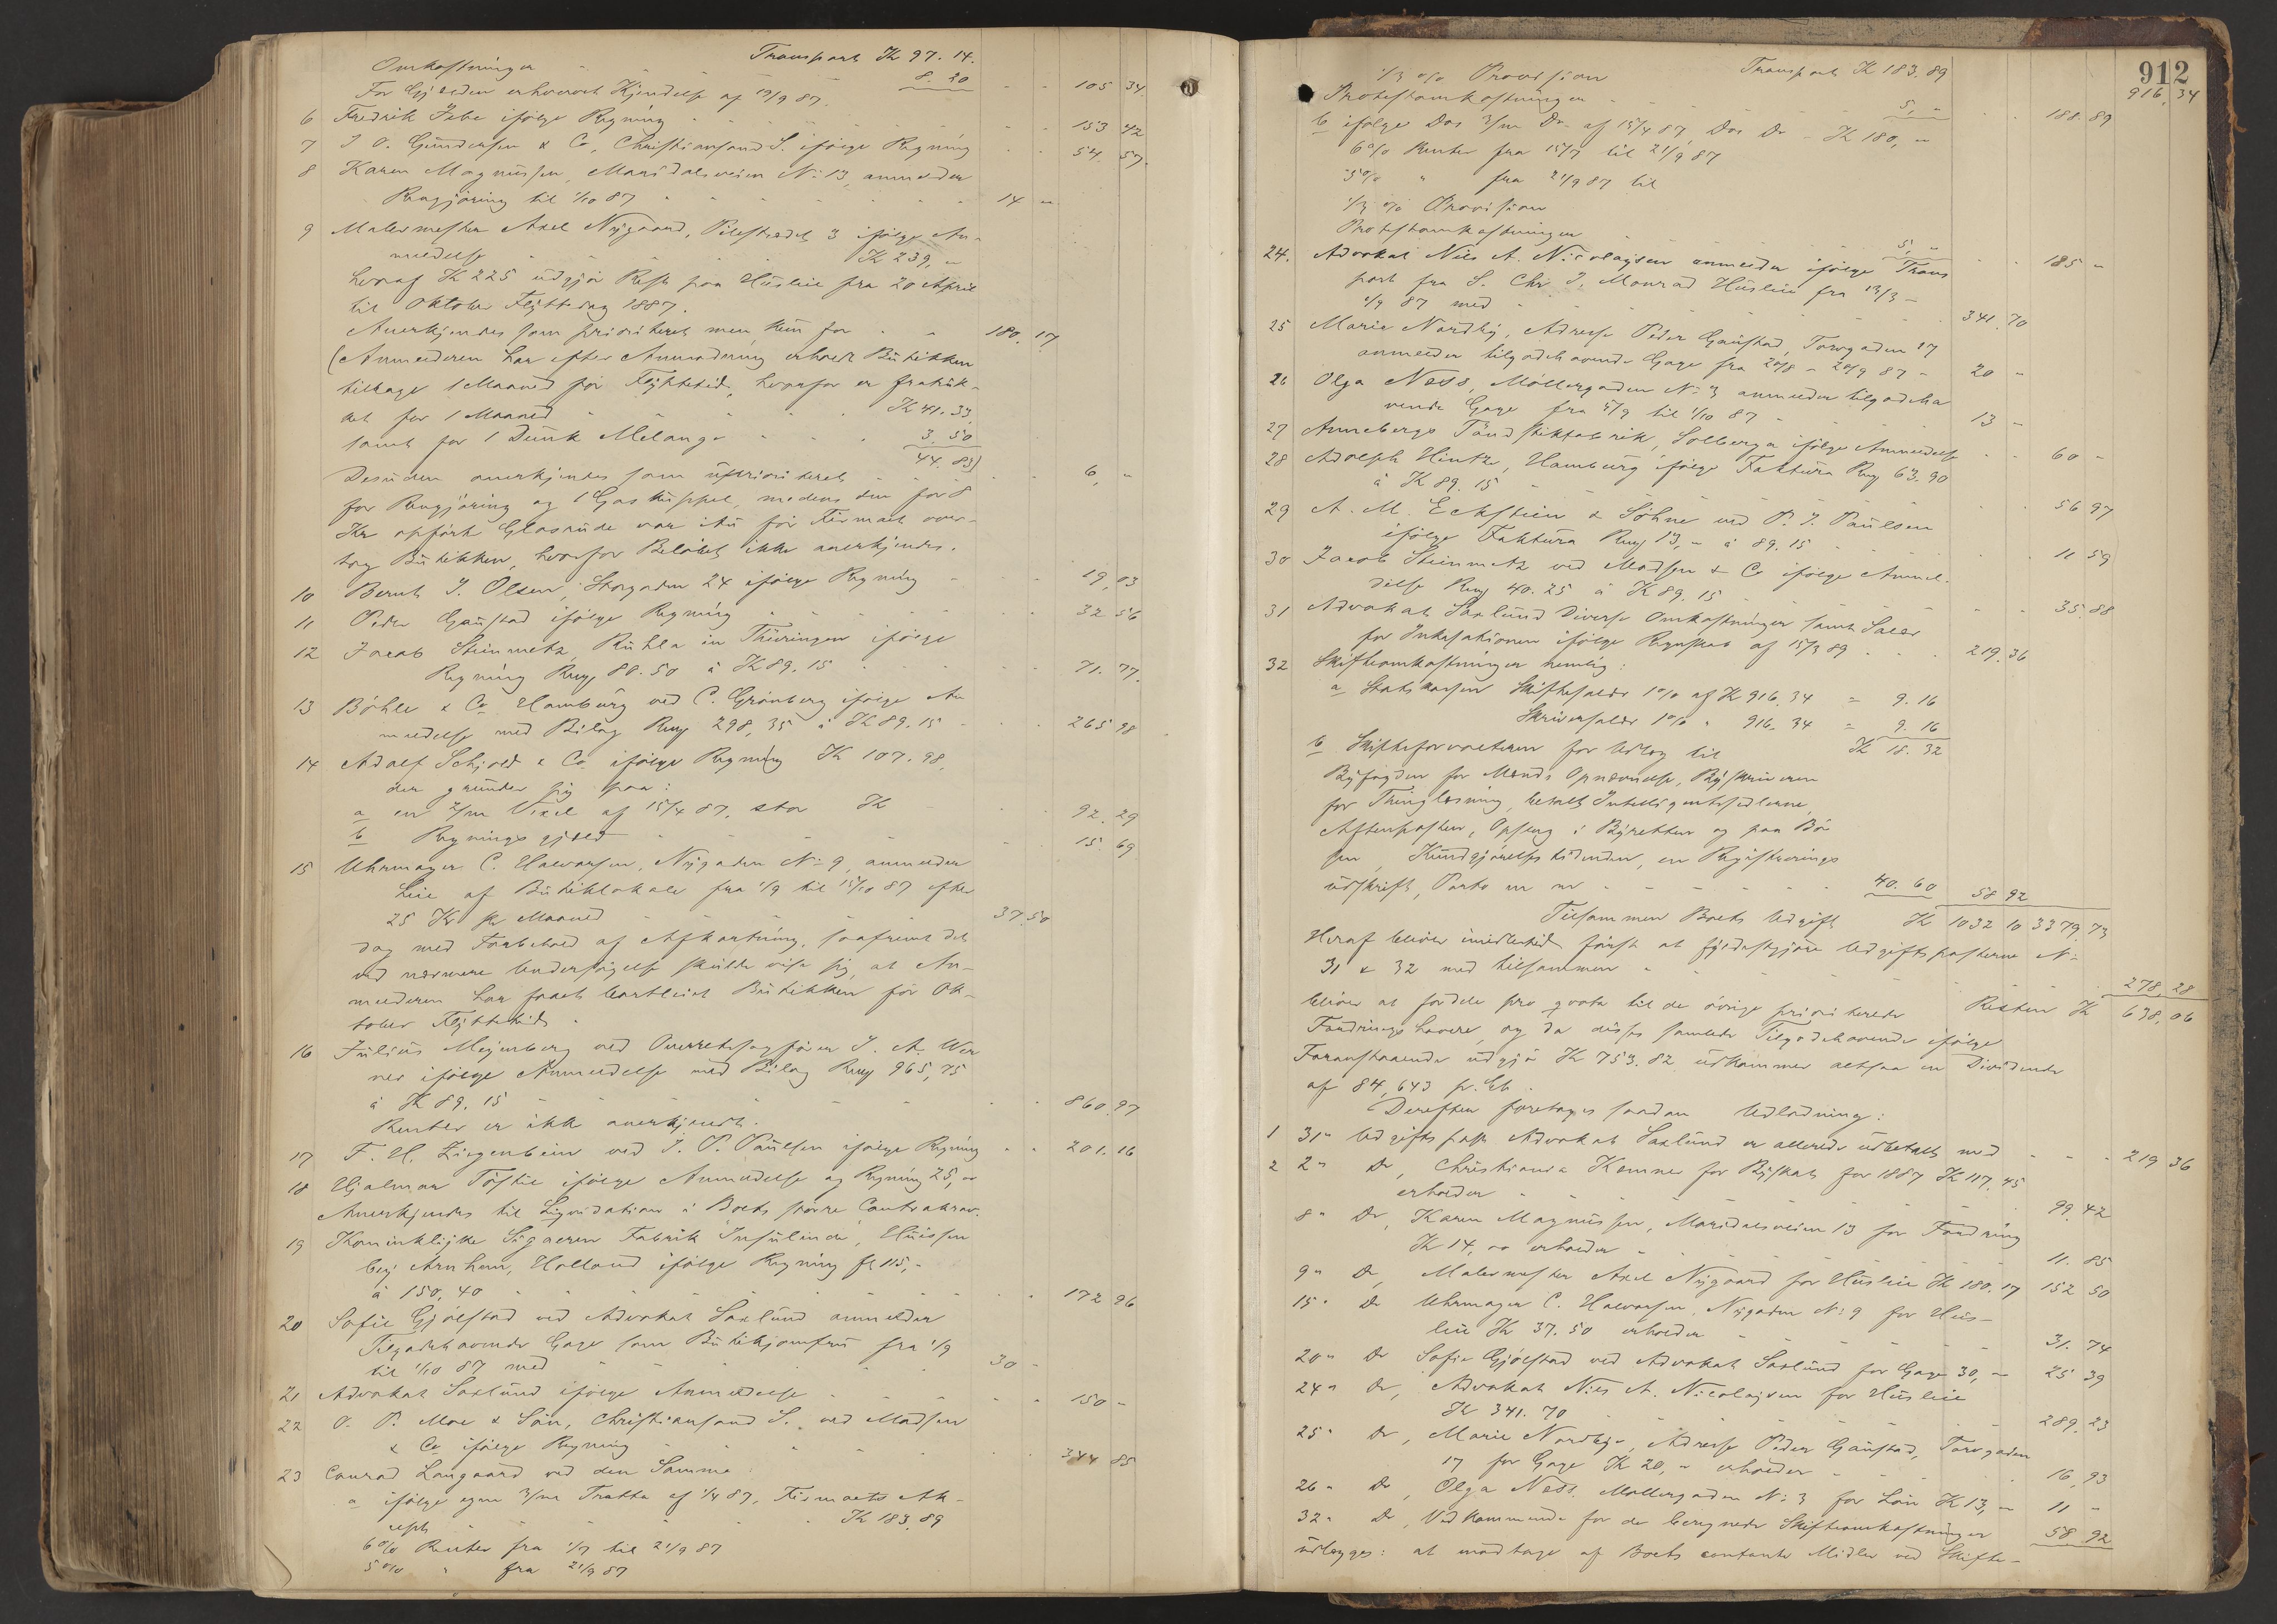 Transport Kr 97. 14.
Omkostninger 8. 20
For Gjælden erhvervet Kjendelse af 19/9 87. 105 34.
6 Fredrik Jebe ifölge Regning 153 42
7 J O. Gundersen & Co, Christiansand S. ifölge Regning 54. 57.
8 Karen Magnussen, Maridalsveien No 13, anmelder
Rengjöring til 1/10 87 14 "
9 Malermester Axel Nygaard, Pilestrædet 3 ifölge An-
meldelse Kr 239, "
hvoraf Kr 225 udgjör Rest paa Husleie fra 20 April
til Oktober Flyttedag 1887.
Anerkjendes som prioriteret men kun for 180. 17
(Anmelderen har efter Anmodning erholdt Butikken
tilbage 1 Maaned för Flyttetid, hvorfor er fratruk-
ket for 1 Maaned Kr 41. 33
samt for 1 Dunk Melange 3. 50
44. 83)
Desuden anerkjendes som uprioriteret 6, "
for Rengjöring og 1 Gaskuppel, medens den for 8
Kr opfört Glasrude var itu för Firmaet over-
tog Butikken, hvorfor Belöbet ikke anerkjendes.
10 Bernt J. Olsen, Storgaden 24 ifölge Regning 19, 03
11 Peder Gaustad ifölge Regning 32 56
12 Jacob Steinmetz, Ruhla in Thüringen ifölge
Regning Rmj 80. 50 à Kr 89. 15 71. 77.
13 Böhle & Co Hamburg ved C. Grönberg ifölge An
meldelse med Bilag Rmj 298, 35 à Kr 89. 15 265 98
14 Adolf Schjold & Co. ifölge Regning Kr 107. 98,
der grunder sig paa:
a en 2/m Vexel af 15/4 87, stor Kr 92. 29
b Regningsgjæld 15. 69
15 Uhrmager C. Halvorsen, Nygaden No 9, anmelder
Leie af Butiklokale fra 1/9 til 15/10 87 efter
25 Kr pr Maaned 37. 50
dog med Forbehold af Afkortning, saafremt det
ved nærmere Undersögelse skulde vise sig, at An-
melderen har faaet bortleiet Butikken för Ok-
tober Flyttetid.
16 Julius Meyenberg ved Overretssagförer J. A. Wer
ner ifölge Anmeldelse med Bilag Rmj 965, 75
à Kr 89. 15 860. 97
Renter er ikke anerkjendt.
17 F. H. Ziegenbein ved J. P. Paulsen ifölge Regning 201. 16
18 Hjalmar Töftie ifölge Anmeldelse og Regning 25, "
Anerkjendes til Ligvidation i Boets större Contrakrav.
19 Koninklijke Sigaeren Fabrik "Insulinde", Huissen
bej Arnhem, Holland ifölge Regning fl 115, -
à 150, 40 172 96
20 Sofie Gjölstad ved Advokat Saxlund anmelder
Tilgodehavende Gage som Butikjomfru fra 1/9
til 1/10 87 med 30 -
21 Advokat Saxlund ifölge Anmeldelse 150 -
22 O. P. Moe & Sön, Christiansand S. ved Madsen
& Co ifölge Regning 344 85
23 Conrad Langaard ved den Samme:
a ifölge egen 3/m Tratta af 1/4 87, Firmaets Ak-
cept Kr 183. 89
6 % Renter fra 1/7 til 21/9 87
5 % " fra 21/9 87
912
Transport Kr 183. 89 916, 34
1/3 % Provision
Protestomkostninger 5, " 188. 89
b ifölge Dos 3/m Do af 15/4 87 Dos Do Kr 180, "
6 % Renter fra 15/7 til 21/9 87
5 % " fra 21/9 87 til
1/3 % Provision
Protestomkostninger 5, " 185 "
24. Advokat Niels A. Nicolaysen anmelder ifölge Trans
port fra S. Chr J. Monrad Husleie fra 13/3 -
1/9 87 med 341. 70
25 Marie Nordby, Adresse Peder Gaustad, Torvgaden 17
anmelder tilgodehavende Gage fra 20/8 - 20/9 87 20 "
26 Olga Ness, Möllergaden No 3 anmelder tilgodeha
vende Gage fra 5/9 til 1/10 87 13 -
27 Annebergs Tändstikfabrik, Solberga ifölge Anmeldelse 60 -
28 Adolph Hintze, Hamburg ifölge Faktura Rmj 63. 90
à Kr 89. 15 56 97
29 A. M. Eckstein & Söhne ved P. J. Paulsen
ifölge Faktura Rmj 13, - à 89. 15 11 59
30 Jacob Steinmetz ved Madsen & Co ifölge Anmel-
delse Rmj 40. 25 à Kr 89. 15 35. 88
31 Advokat Saxlund Diverse Omkostninger samt Salær
for Inkasationen ifölge Regnskab af 15/3 89 219. 36
32 Skifteomkostninger nemlig:
a Statskassen Skiftesalær 1% af Kr 916. 34 = 9. 16
Skriversalær 1% " 916. 34 = 9. 16
Kr 18. 32
b Skifteforvalteren for Udlæg til
Byfogden for Mænds Opnævnelse, Byskriveren
for Thinglæsning, betalt Intelligentssedlerne,
Aftenposten, Opslag i Byretten og paa Bör
sen, Kundgjörelsestidenden, en Registrerings
udskrift, Porto m m 40. 60 58 92
Tilsammen Boets Udgift Kr 1032 10 3379. 73
Heraf bliver imidlertid först at fyldestgjöre Udgiftsposterne No
31 & 32 med tilsammen 278. 28
Resten Kr 638. 06
bliver at fordele pro qvota til de övrige prioriterede
Fordringshavere, og da disses samlede Tilgodehavende ifölge
Foranstaaende udgjör Kr 753. 82 udkommer altsaa en Dividende
af 84,643 pr. Ct.
Derefter foretages saadan Udlodning:
1 31" Udgiftspost Advokat Saxlund er allerede udbetalt med 219 36
2 2" Do, Christiania Kemner for Byskat for 1887 Kr 117. 45
erholder 99. 42
8" Do, Karen Magnussen, Maridalsveien 13 for Fordring
Kr 14, oo erholder 11. 85
9" Do, Malermester Axel Nygaard for Husleie Kr 180. 17 152 50
15" Do Uhrmager C. Halvorsen, Nygaden No 9 for Hus-
leie Kr 37. 50 erholder 31. 74
20" Do Sofie Gjölstad ved Advokat Saxlund for Gage 30, - 25 39
24" Do, Advokat Niels A. Nicolaysen for Husleie
Kr 341. 70 289. 23
25" Do, Marie Nordby, Adresse Peder Gaustad, Torvgaden
17 for Gage Kr 20, - erholder 16, 93
26" Do, Olga Ness, Möllergaden No 3 for Lön Kr 13, - 11 -
32" Do, Vedkommende for de beregnede Skifteomkostninger 58. 92
udlægges: at modtage af Boets contante Midler ved Skifte-